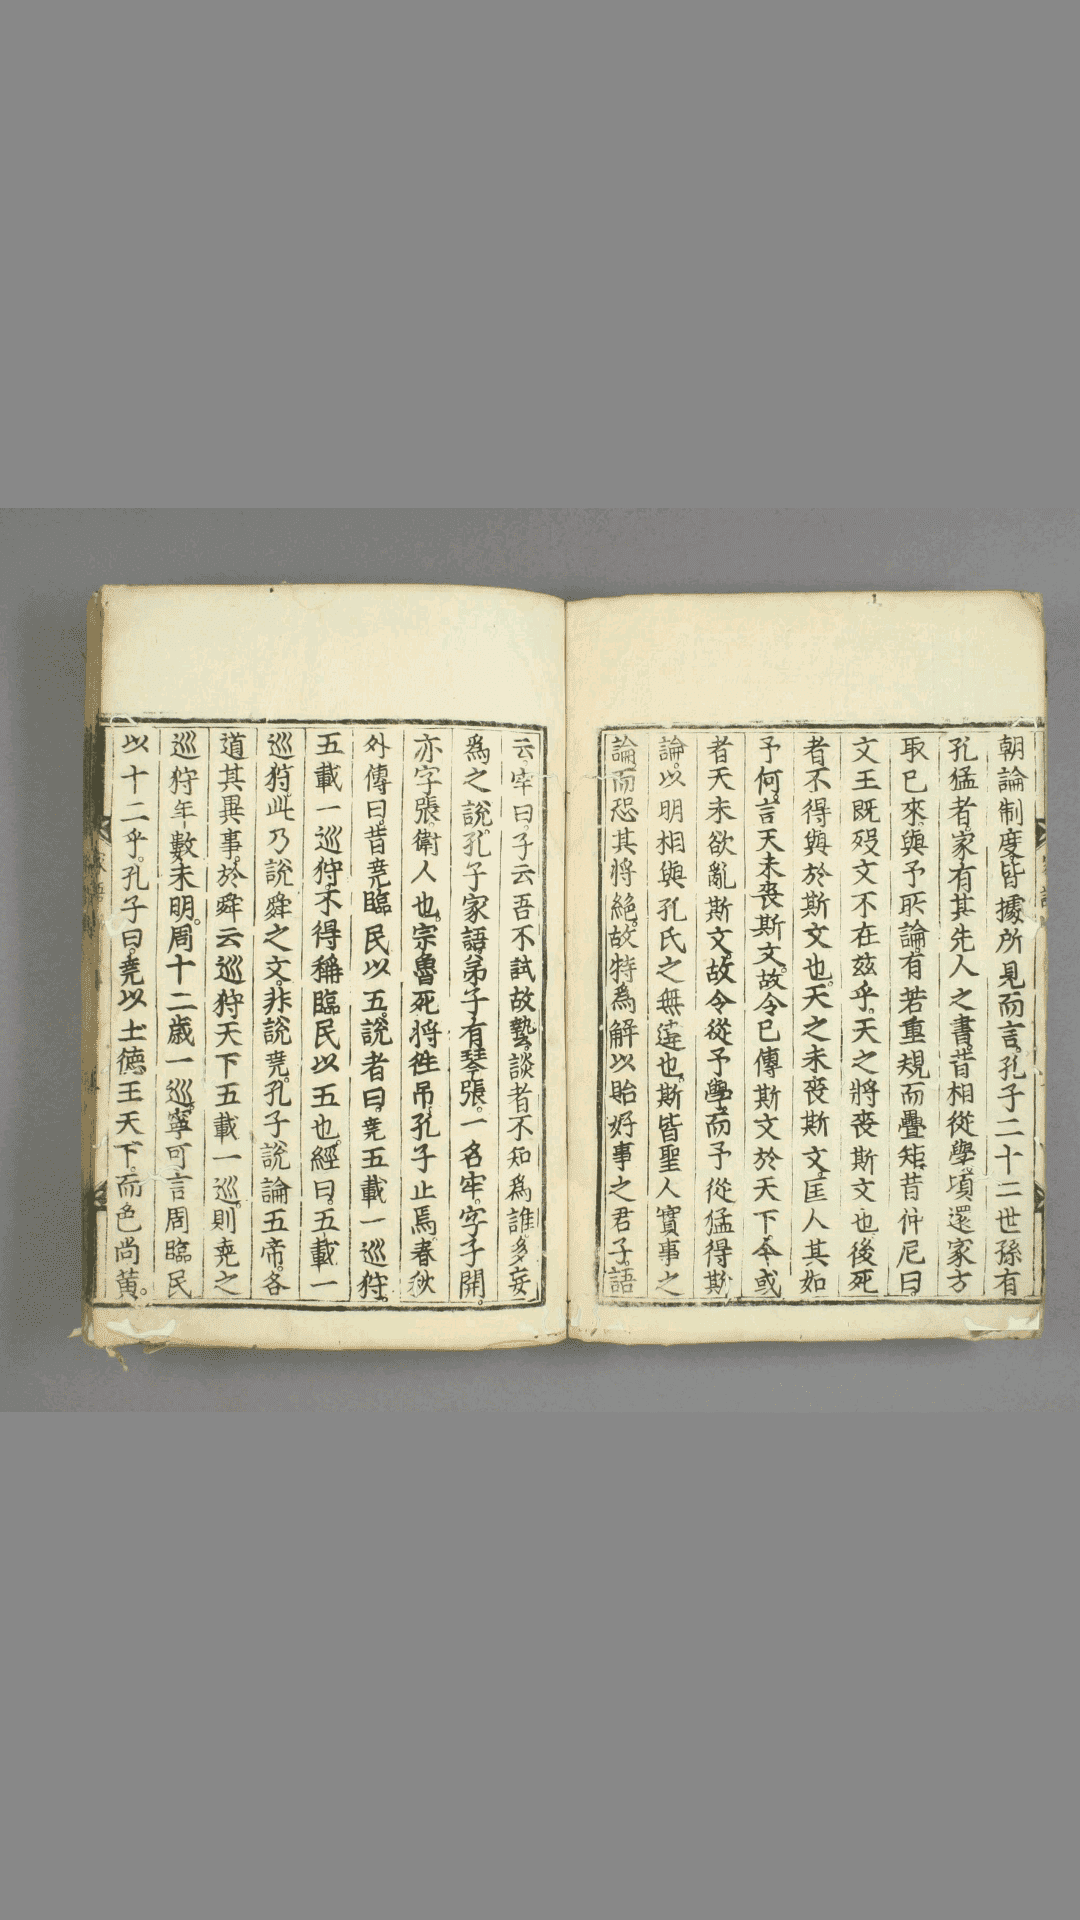 朝論制度。皆據所見而言。孔子二十二世孫有
孔猛者。家有其先人之書。昔相從學。頃還家方
取已來。與予所論。有若重規而疊矩。昔仲尼曰。
文王既歿文不在茲乎。天之將喪斯文也後死
者不得與於斯文也。天之未喪斯文。匡人其如
予何。言天未喪斯文。故令已傳斯文於天下。今或
者天未欲亂斯文。故令從予學。而予從猛得斯
論。以明相與孔氏之無違也。斯皆聖人實事之
論。而恐其將絕。故特為解以貽好事之君子。語
云。牢曰。子云吾不試故藝。談者不知為誰。多妄
為之說。孔子家語。弟子有琴張。一名牢。字子開。
亦字張。衛人也。宗魯死將徃吊。孔子止焉。春秋
外傳曰。昔堯臨民以五。說者曰。堯五載一巡狩。
五載一巡狩。不得稱臨民以五也。經曰。五載一
巡狩。此乃說舜之文。非說堯。孔子說論五帝。各
道其異事。於舜云巡狩天下五載一巡。則堯之
巡狩年數未明。周十二歲一巡。寧可言周臨民
以十二乎。孔子曰。堯以土德王天下。而色尚黃。
家語